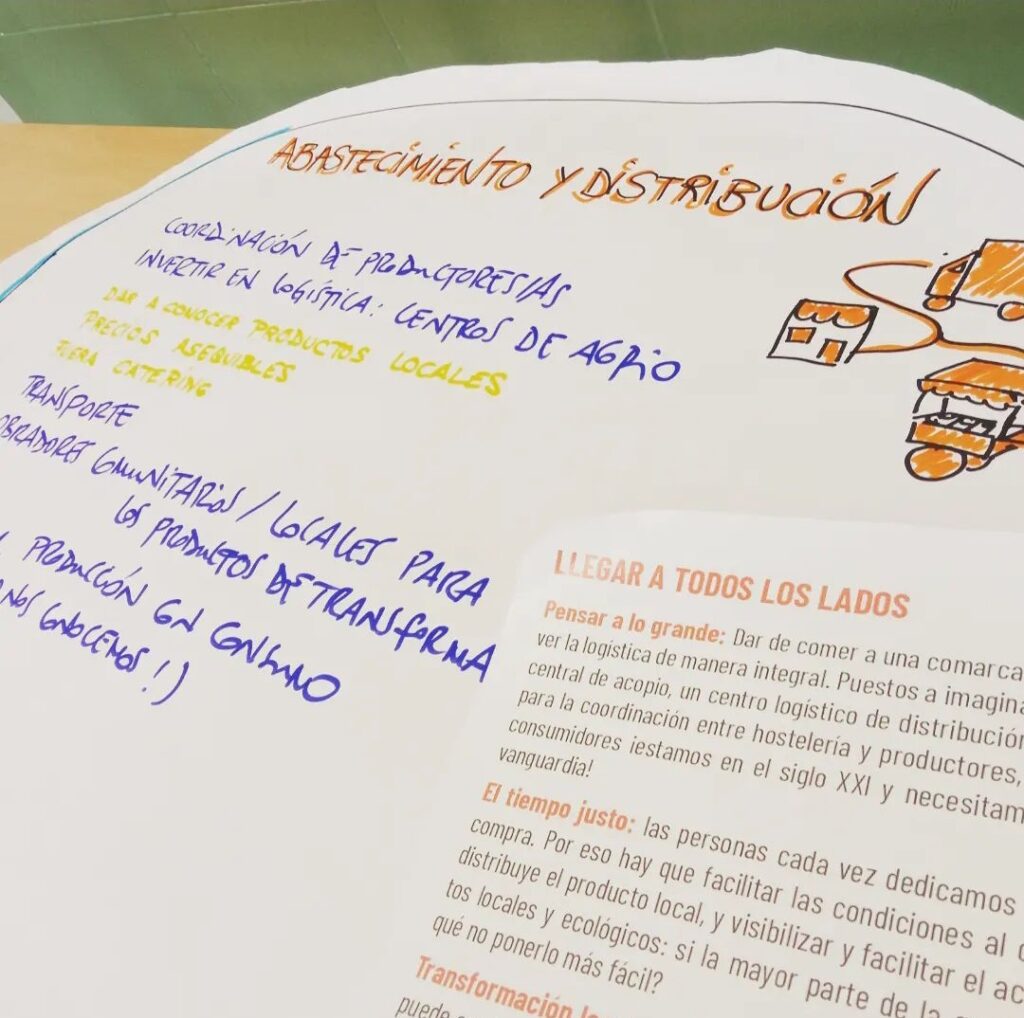 ABASTECIMIENTO Y DISTRIBUCIÓN
COORDINACIÓN DE PRODUCTORES/AS
INVERTIR EN LOGÍSTICA: CENTROS DE ACOPIO
DAR A CONOCER PRODUCTOS LOCALES
PRECIOS ASEQUIBLES
FUERA CATERING
TRANSPORTE
OBRADORES COMUNITARIOS / LOCALES PARA
LOS PRODUCTOS DE TRANSFORMA
PRODUCCIÓN EN CONSUMO
NOS CONOCEMOS!)
LLEGAR A TODOS LOS LADOS
Pensar a lo grande: Dar de comer a una comarca
ver la logística de manera integral. Puestos a imagina
central de acopio, un centro logístico de distribución
para la coordinación entre hostelería y productores,
consumidores ¡estamos en el siglo XXI y necesitam
vanguardia!
El tiempo justo: las personas cada vez dedicamos
compra. Por eso hay que facilitar las condiciones al
distribuye el producto local, y visibilizar y facilitar el ac
tos locales y ecológicos: si la mayor parte de la
qué no ponerlo más fácil?
Transformación
puede